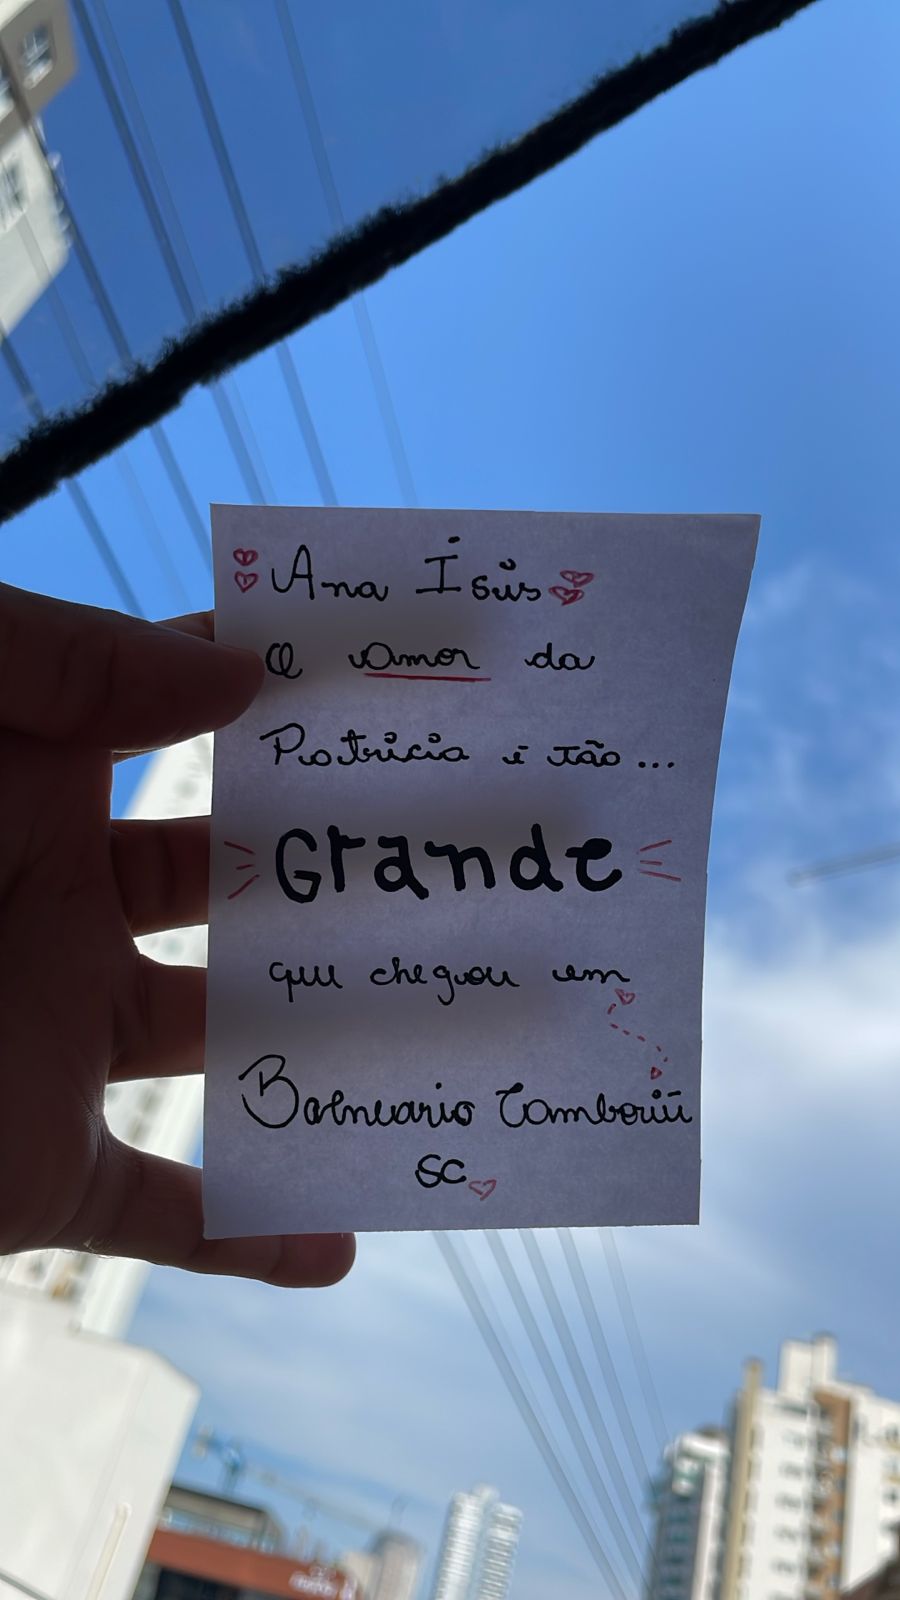 Ana Ísis
O amor da
Patricia é tão...
Grande
que chegou em
Balneario Camboriú
SC